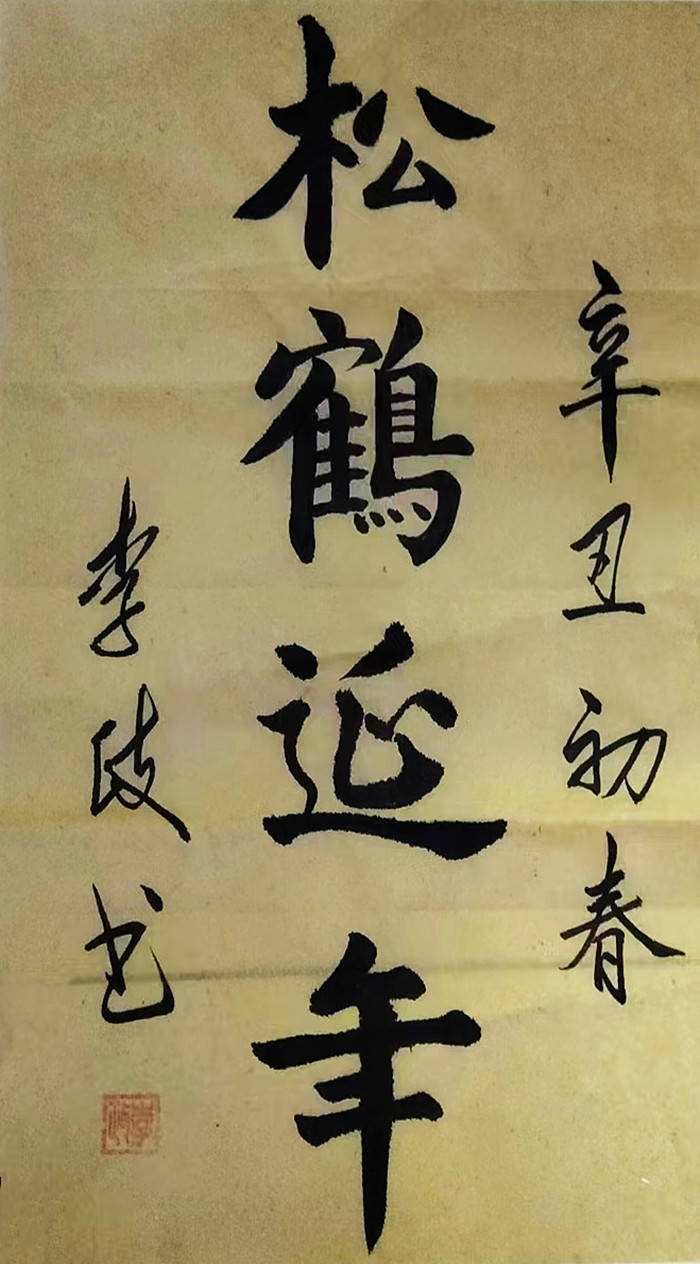 辛丑初春
松鶴延年
李
书